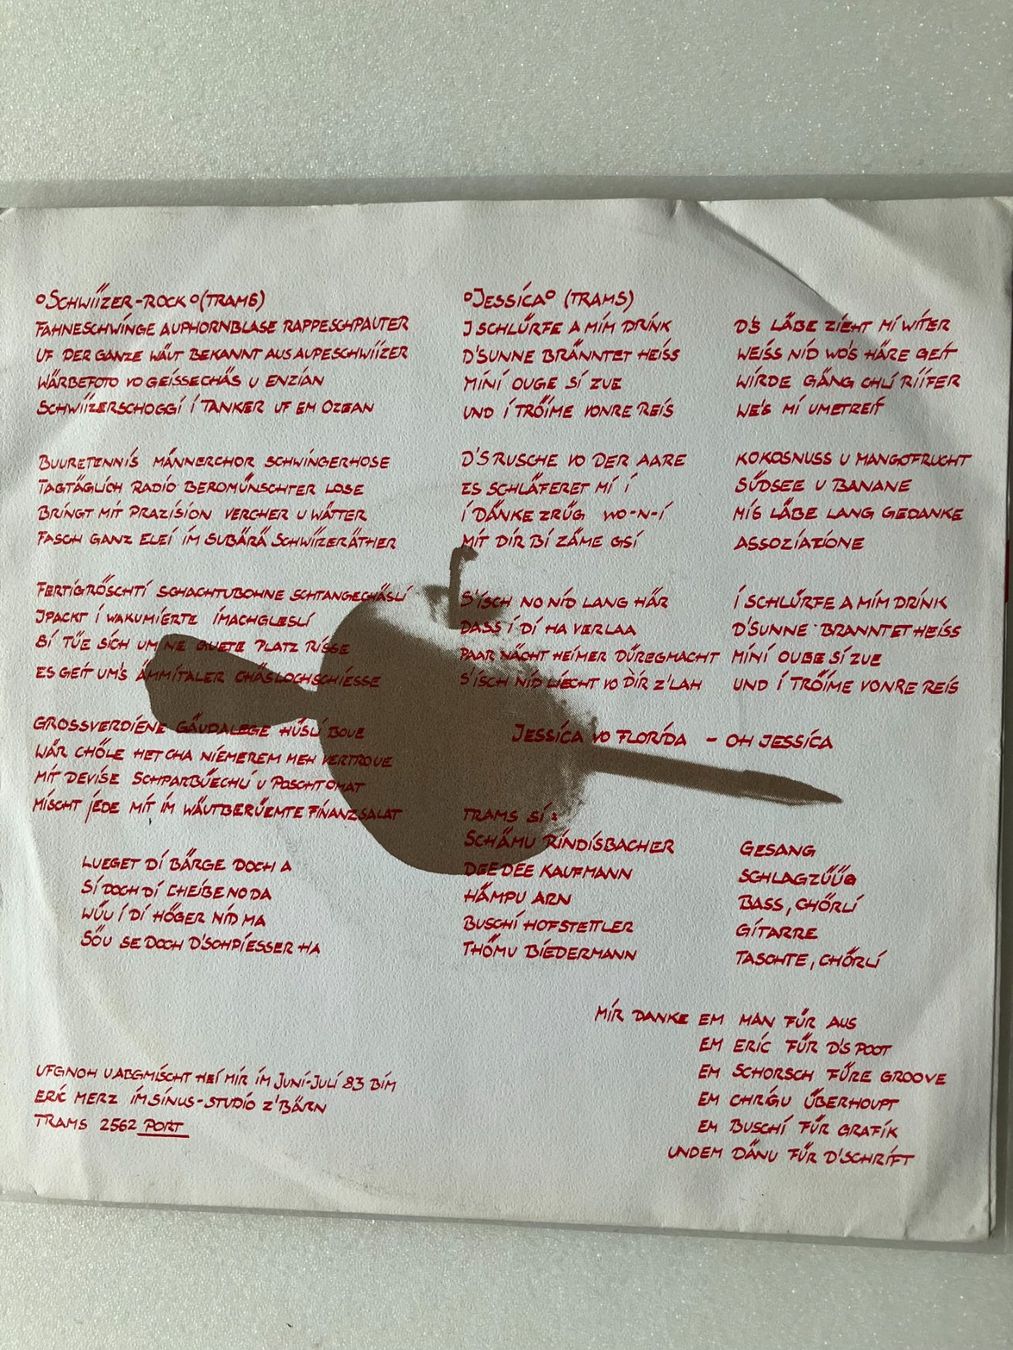 °SCHWIIZER-ROCK° (TRAMS)
FAHNESCHWINGE AUPHORNBLASE RAPPESCHPAUTER
UF DER GANZE WÄUT BEKANNT AUS AUPESCHWIIZER
WÄRBEFOTO VO GEISSECHÄS U ENZIAN
SCHWIIZERSCHOGGI I TANKER UF EM OZEAN
BUURETENNIS MÄNNERCHOR SCHWINGERHOSE
TAGTÄGLICH RADIO BEROMÜNSCHTER LOSE
BRINGT MIT PRAZISION VERCHER U WÄTTER
FASCH GANZ ELEI IM SUBÄRÄ SCHWIIZERÄTHER
FERTIGRÖSCHTI SCHACHTUBOHNE SCHTANGECHÄSLI
IPACKT I WAKUMIERTE IMACHGLESLI
BI TÜE SICH UM NE GUETE PLATZ RISSE
ES GEIT UM'S ÄMMITALER CHÄSLOCHSCHIESSE
GROSSVERDIENE GÄUDALEGE HÜSLI BOUE
WÄR CHÖLE HET CHA NIEMEREM MEH VERTROUE
MIT DEVISE SCHPARBÜECHLI U POSCHTOMAT
MISCHT JEDE MIT IM WÄUTBERÜEMTE FINANZSALAT
LUEGET DI BÄRGE DOCH A
SI DOCH DI CHEIBE NO DA
WÜU I DI HÖGER NID MA
SÖU SE DOCH D'SCHPIESSER HA
UFGNOH U ABGMISCHT HEI MIR IM JUNI-JULI 83 BIM
ERIC MERZ IM SINUS-STUDIO Z'BÄRN
TRAMS 2562 PORT
°JESSICA° (TRAMS)
I SCHLÜRFE A MIM DRINK
D'SUNNE BRÄNNTET HEISS
MINI OUGE SI ZUE
UND I TRÖIME VONRE REIS
D'S RUSCHE VO DER AARE
ES SCHLÄFERET MI I
I DÄNKE ZRÜG WO-N-I
MIT DIR BI ZÄME GSI
S'ISCH NO NID LANG HÄR
DASS I DI HA VERLAA
PAAR NÄCHT HEIMER DÜREGMACHT
S'ISCH NID LIECHT VO DIR Z'LAH
D'S LÄBE ZIEHT MI WITER
WEISS NID WO'S HÄRE GEIT
WIRDE GÄNG CHLI RIIFER
WE'S MI UMETREIT
KOKOSNUSS U MANGOFRUCHT
SÜDSEE U BANANE
MIS LÄBE LANG GEDANKE
ASSOZIATIONE
I SCHLÜRFE A MIM DRINK
D'SUNNE BRANNTET HEISS
MINI OUGE SI ZUE
UND I TRÖIME VONRE REIS
JESSICA VO FLORIDA - OH JESSICA
TRAMS SI:
SCHÄMU RINDISBACHER GESANG
DEE DEE KAUFMANN SCHLAGZÜÜG
HÄMPU ARN BASS, CHÖRLI
BUSCHI HOFSTETTLER GITARRE
THÖMU BIEDERMANN TASCHTE, CHÖRLI
MIR DANKE EM MAN FÜR AUS
EM ERIC FÜR D'S POOT
EM SCHORSCH FÜRE GROOVE
EM CHRIGU ÜBERHOUPT
EM BUSCHI FÜR GRAFIK
UNDEM DÄNU FÜR D'SCHRIFT